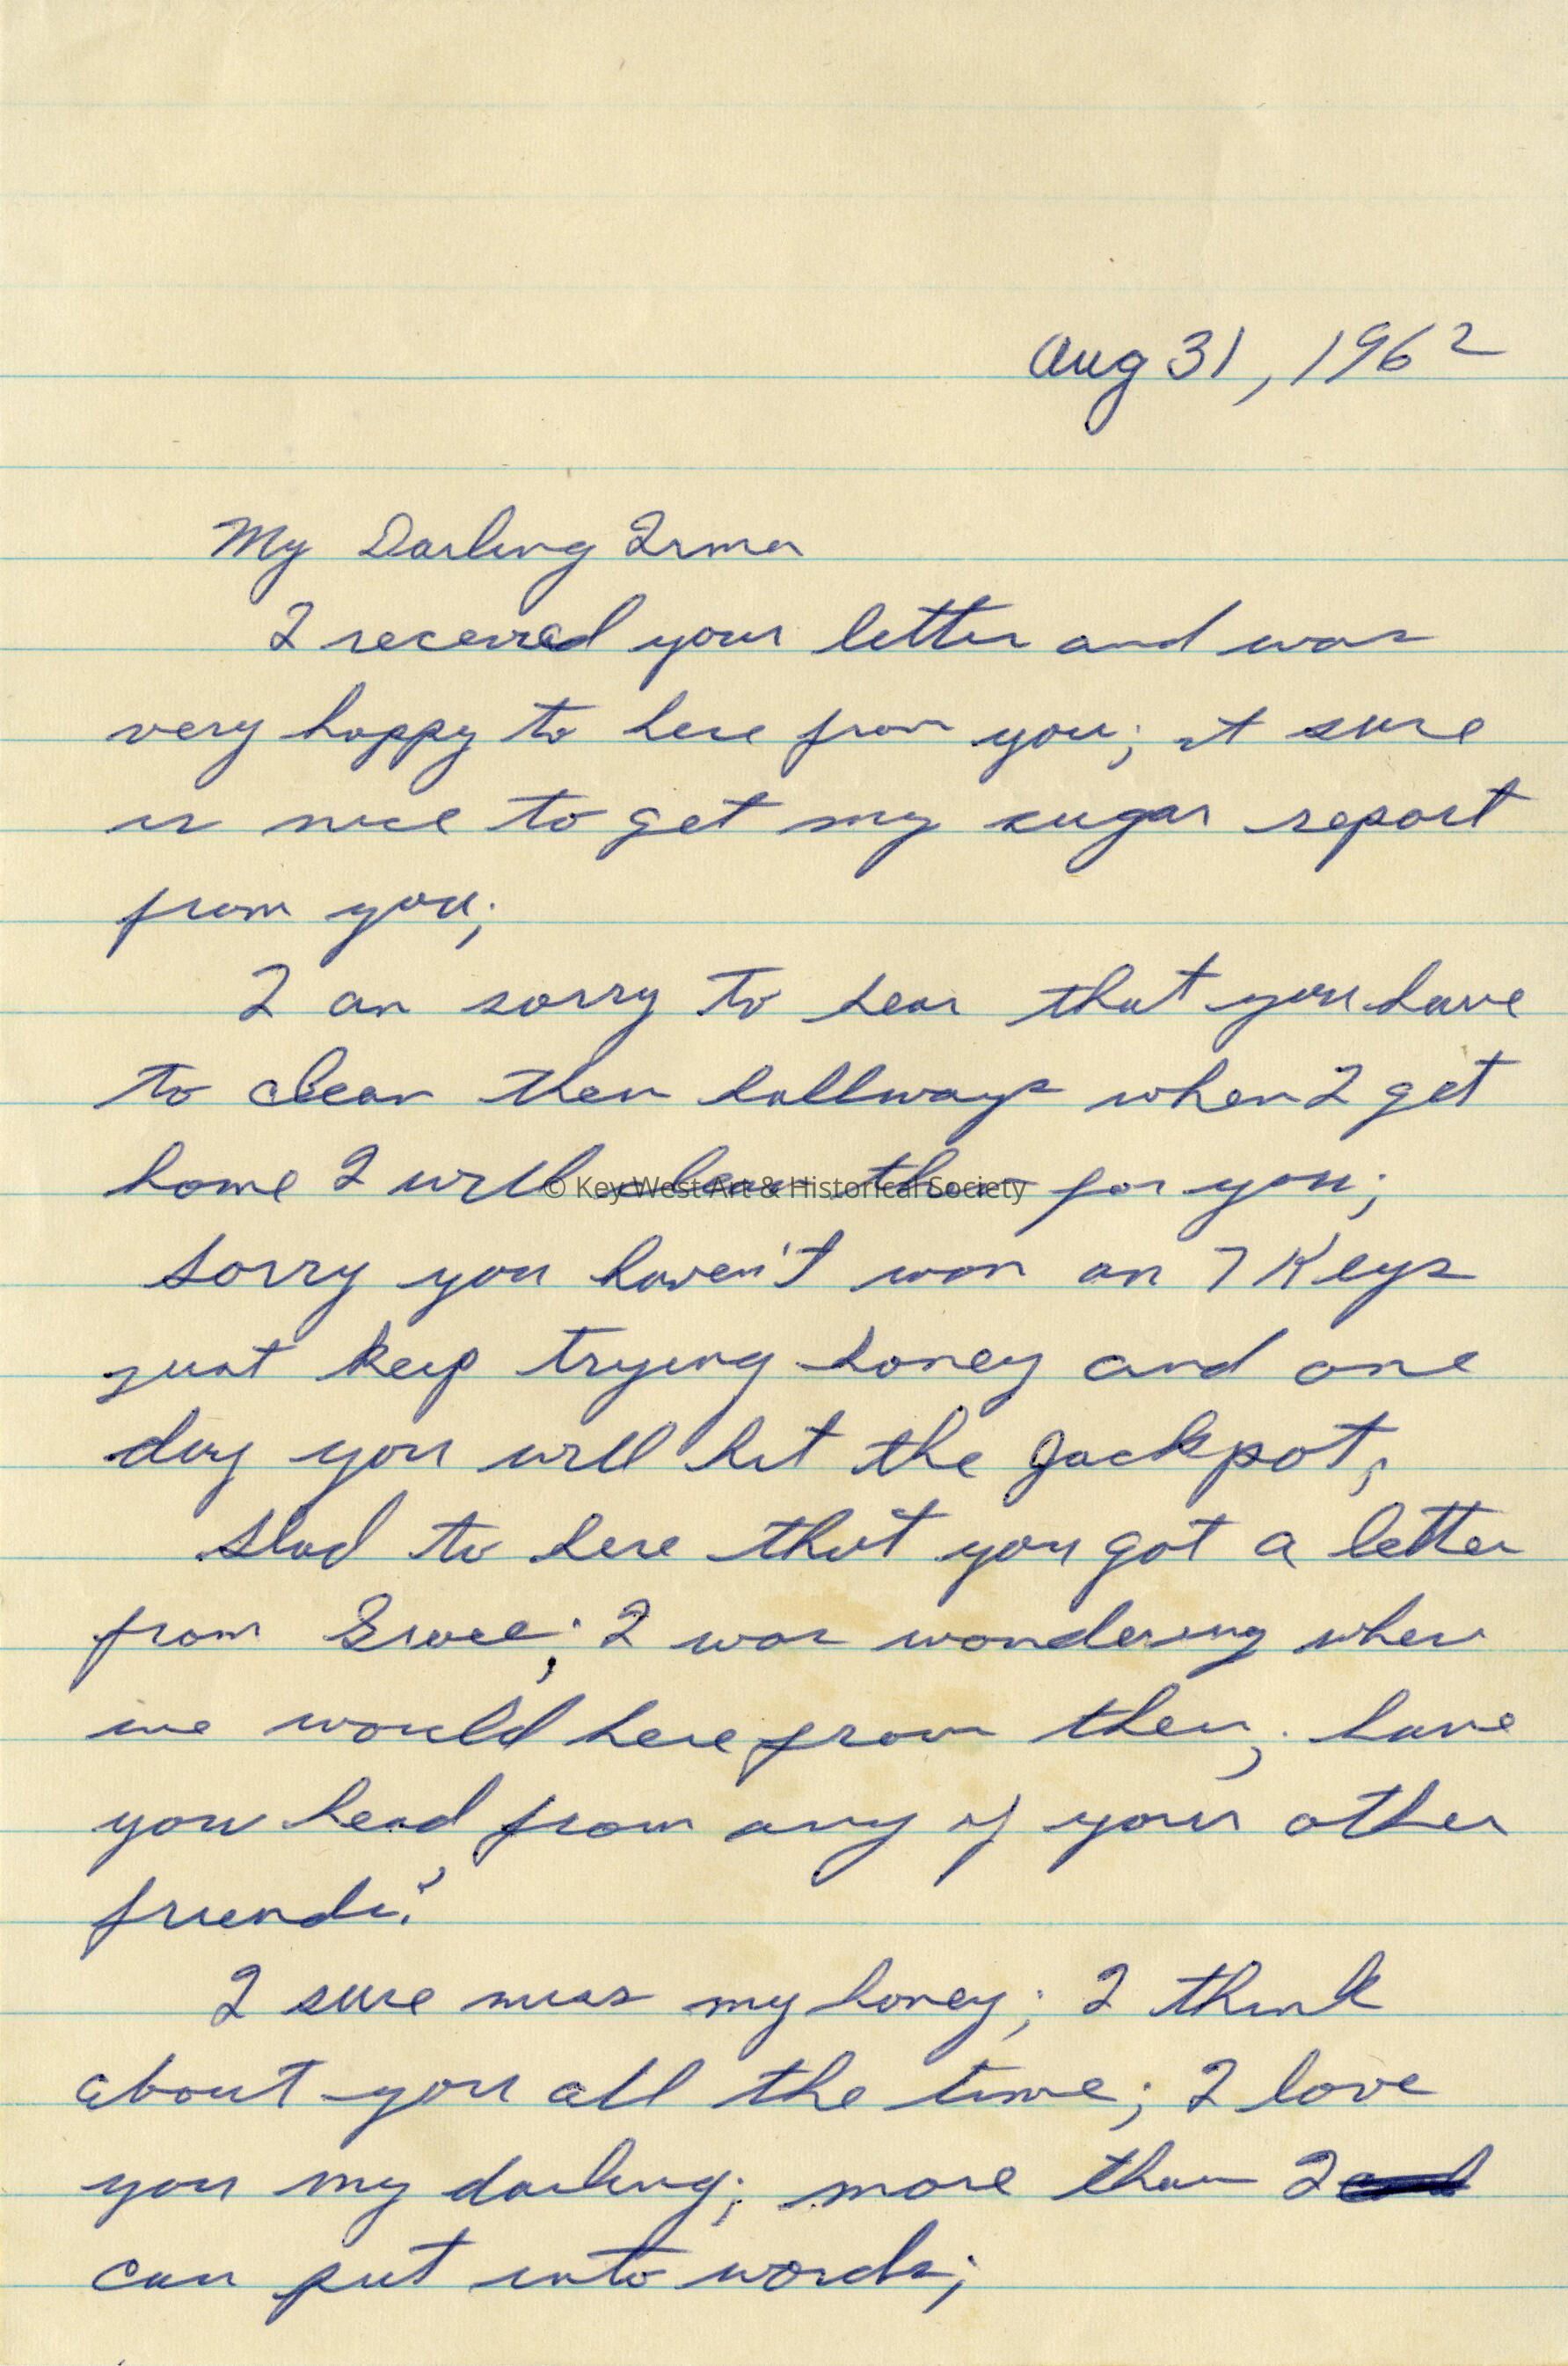 Aug 31, 1962
My Darling Irma
I received your letter and was
very happy to here from you; it sure
is nice to get my sugar report
from you;
I am sorry to hear that you have
to clean them hallways when I get
home I will clean them for you;
© Key West Art & Historical Society
Sorry you haven't won on 7 Keys
just keep trying honey and one
day you will hit the Jackpot;
Glad to here that you got a letter
from ; I was wondering when
we would here from them; have
you head from any of your other
friends?
I sure miss my honey; I think
about you all the time; I love
you my darling; more than I
can put into words;